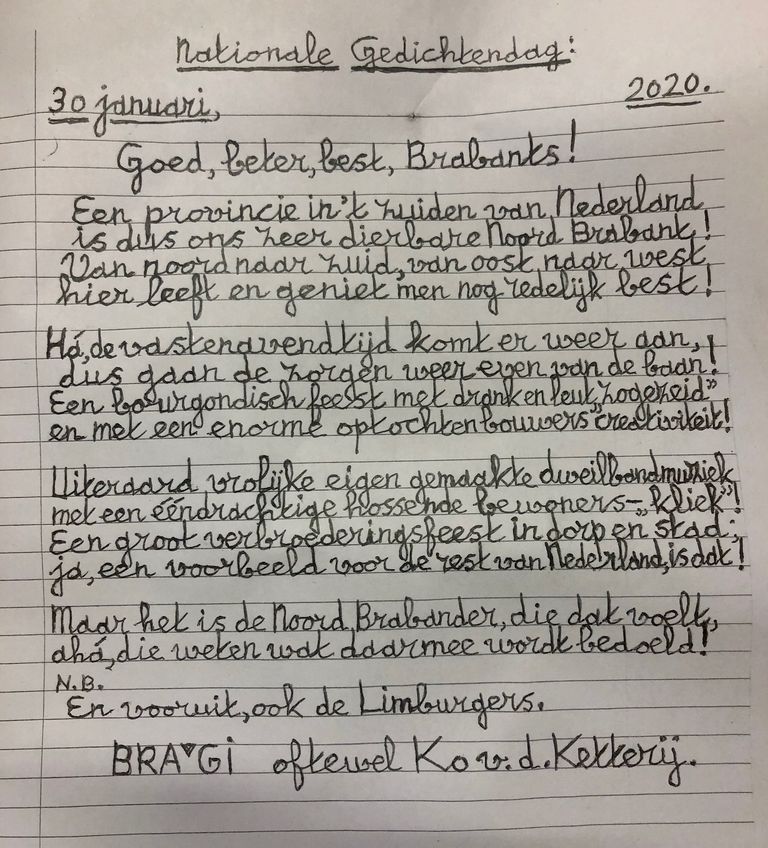 Nationale Gedichtendag:
30 januari, 2020.
Goed, beter, best, Brabants!
Een provincie in 't zuiden van Nederland
is dus ons zeer dierbare Noord Brabant!
Van noord naar zuid, van oost naar west,
hier leeft en geniet men nog redelijk best!
Há, de vastenavendtijd komt er weer aan,
dus gaan de zorgen weer even van de baan!
Een bourgondisch feest met drank en leut, zogezeid"
en met een enorme optochtenbouwers "creativiteit!
Uiteraard vrolijke eigen gemaakte dweilbandmuziek
met een ééndrachtige hossende bewoners-"kliek"!
Een groot verbroederingsfeest in dorp en stad;
ja, een voorbeeld voor de rest van Nederland, is dat!
Maar het is de Noord Brabander, die dat voelt,
ahá, die weten wat daarmee wordt bedoeld!
N.B.
En vooruit, ook de Limburgers.
BRA♥Gi oftewel Ko v.d. Ketterij.